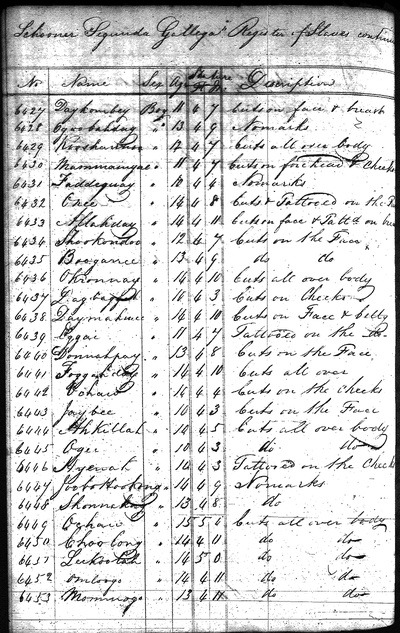 Schooner Segunda Gallega Register of Slaves continu
No Name Sex Age Stature F In Description
6427 Daykombey Boy 11 4 7 Cuts on face & breast
6428 " 13 4 9 No marks
6429 " 12 4 7 Cuts all over body
6430 " 11 4 7 Cuts on forehead & Cheeks
6431 Faddeguay " 10 4 4 No marks
6432 Okee " 14 4 8 Cuts & Tattooed on the
6433 Aflahday " 14 4 11 Cuts on face & Tattd on
6434 Shookondoo " 12 4 7 Cuts on the Face
6435 Booganee " 13 4 9 do do
6436 " 14 4 10 Cuts all over body
6437 " 10 4 3 Cuts on Cheeks
6438 Daymahinee " 14 4 10 Cuts on Face & belly
6439 Eggai " 11 4 7 Tattooed on the do
6440 Lonnahpay " 13 4 8 Cuts on the Face
6441 Foggahday " 14 4 10 Cuts all over
6442 " 10 4 4 Cuts on the Cheeks
6443 Jaybee " 10 4 3 Cuts on the Face
6444 Ahkillah " 10 4 5 Cuts all over body
6445 Ogee " 10 4 3 do do
6446 Ayewah " 10 4 3 Tattooed on the Cheeks
6447 " 14 4 9 No marks
6448 " 13 4 8 do
6449 " 15 5 0 Cuts all over body
6450 Choolong " 14 4 11 do do
6451 Leekoolah " 14 5 0 do do
6452 Omloogo " 14 4 11 do do
6453 " 13 4 11 do do